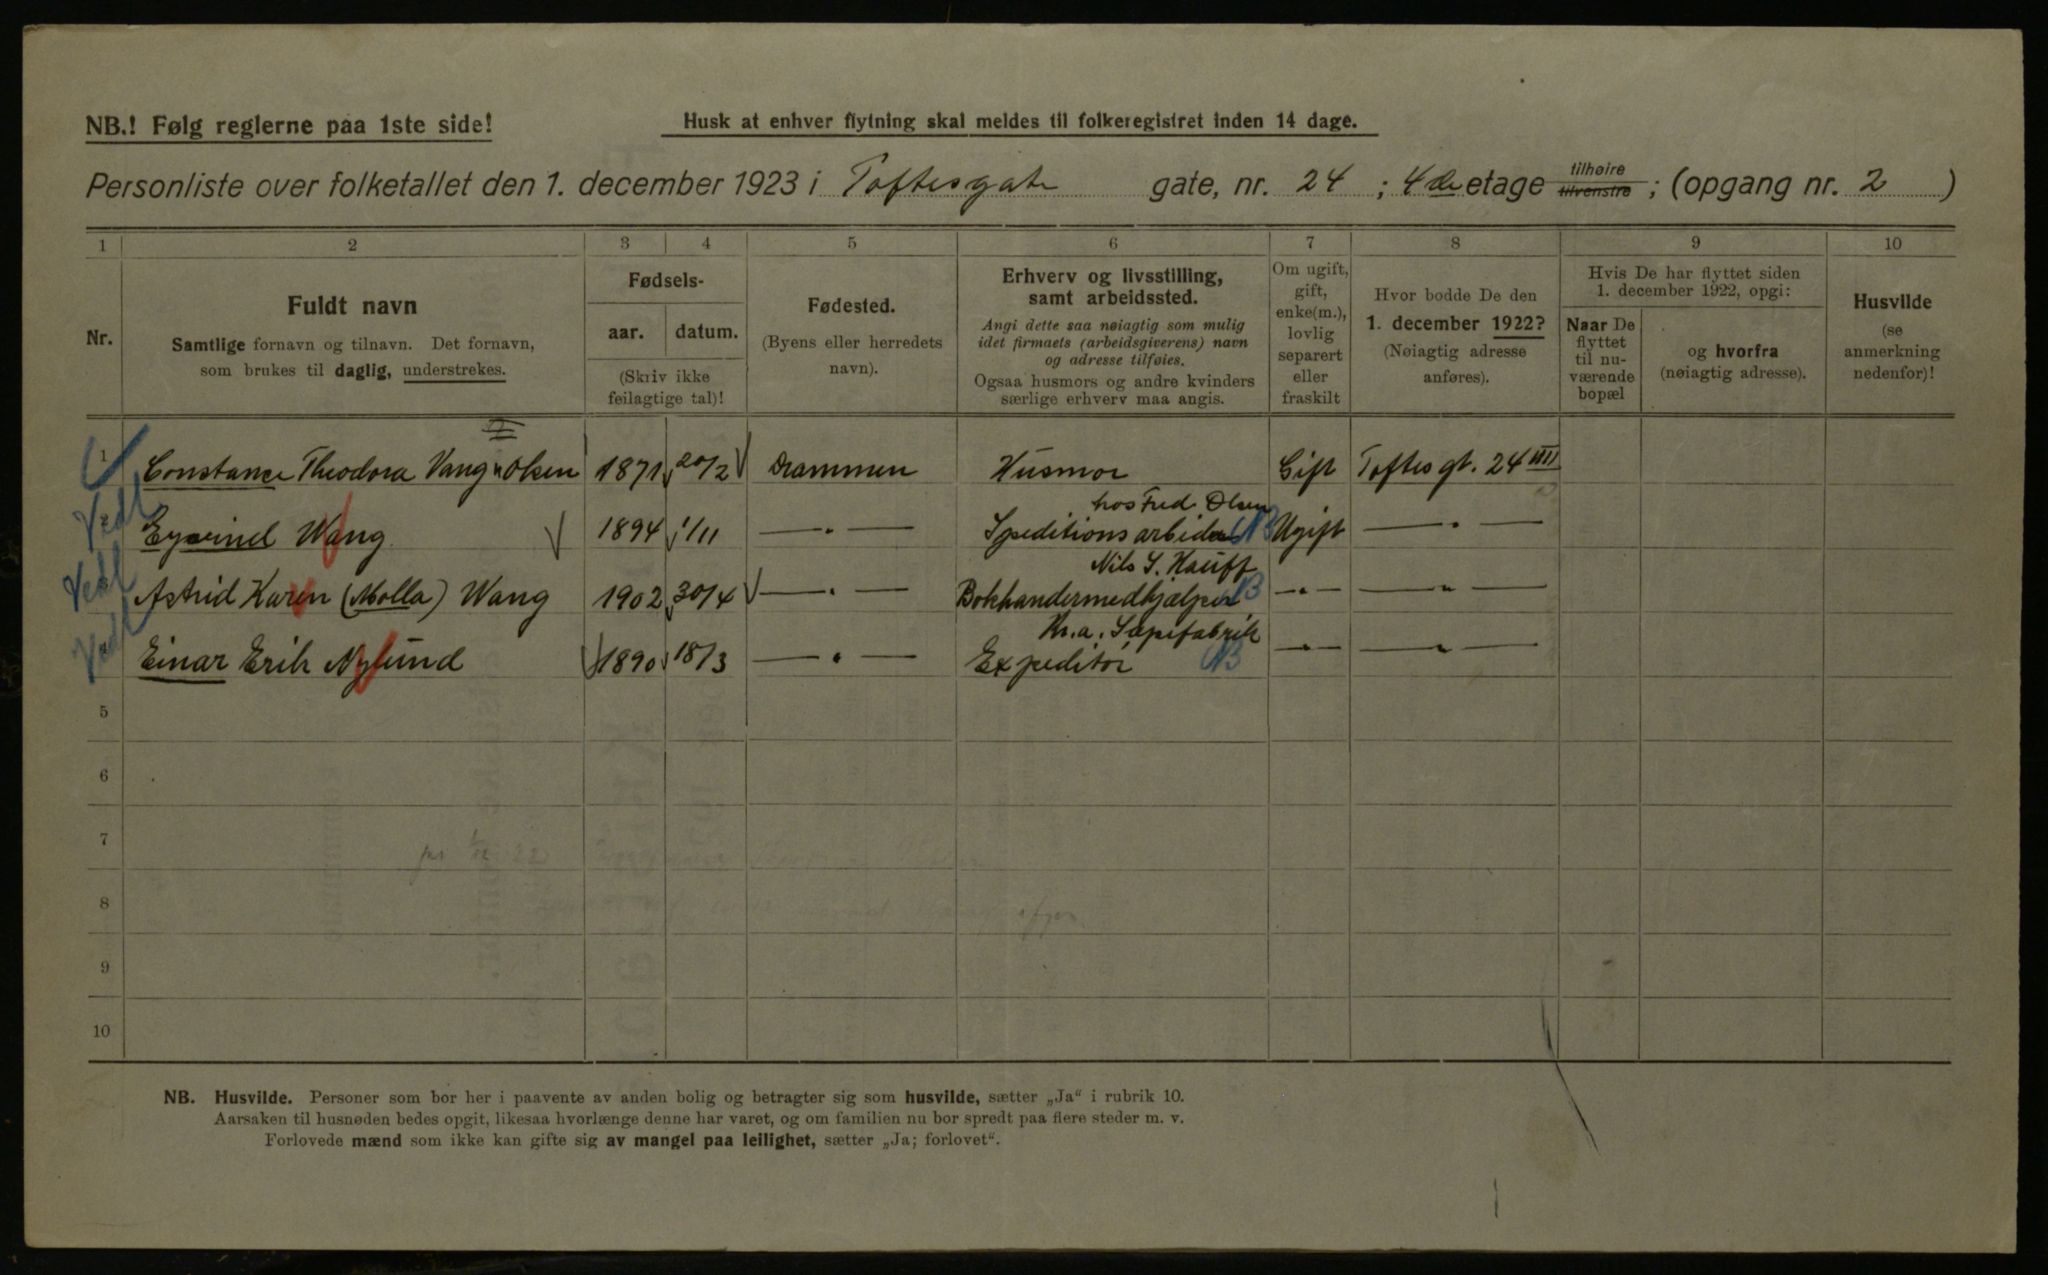 NB.! Følg reglerne paa 1ste side!
Husk at enhver flytning skal meldes til folkeregistret inden 14 dage.
Personliste over folketallet den 1. december 1923 i Toftesgate gate, nr. 24 ; 4de etage tilhøire tilvenstre ; (opgang nr. 2 )
1 2 3 4 5 6 7 8 9 10
Nr.
Fuldt navn
Samtlige fornavn og tilnavn. Det fornavn,
som brukes til daglig, understrekes.
Fødsels-
aar. datum.
(Skriv ikke
feilagtige tal)!
Fødested.
(Byens eller herredets
navn).
Erhverv og livsstilling,
samt arbeidssted.
Angi dette saa nøiagtig som mulig
idet firmaets (arbeidsgiverens) navn
og adresse tilføies.
Ogsaa husmors og andre kvinders
særlige erhverv maa angis.
Om ugift,
gift,
enke(m.),
lovlig
separert
eller
fraskilt
Hvor bodde De den
1. december 1922?
(Nøiagtig adresse
anføres).
Hvis De har flyttet siden
1. december 1922, opgi:
Naar De
flyttet
til nu-
værende
bopæl
og hvorfra
(nøiagtig adresse).
Husvilde
(se
anmerkning
nedenfor)!
1 Constance Theodora Vang Olsen 1871 20/2 Drammen Husmor Gift Toftes gt. 24 IIII
hos Fred. Olsen
Vedl Eyvind Wang 1894 1/11 — " — Speditionsarbider NB Ugift — " —
Nils S. Hauff
Vedl Astrid Karen (Molla) Wang 1902 30/4 — " — Bokhandermedhjælper NB — " — — " —
Kr.a. Sæpefabrik
Vedl Einar Erik Nylund 1890 18/3 — " — Expeditør NB — " — — " —
5
6
7
8
9
10
NB. Husvilde. Personer som bor her i paavente av anden bolig og betragter sig som husvilde, sætter „Ja“ i rubrik 10.
Aarsaken til husnøden bedes opgit, likesaa hvorlænge denne har varet, og om familien nu bor spredt paa flere steder m. v.
Forlovede mænd som ikke kan gifte sig av mangel paa leilighet, sætter „Ja; forlovet“.